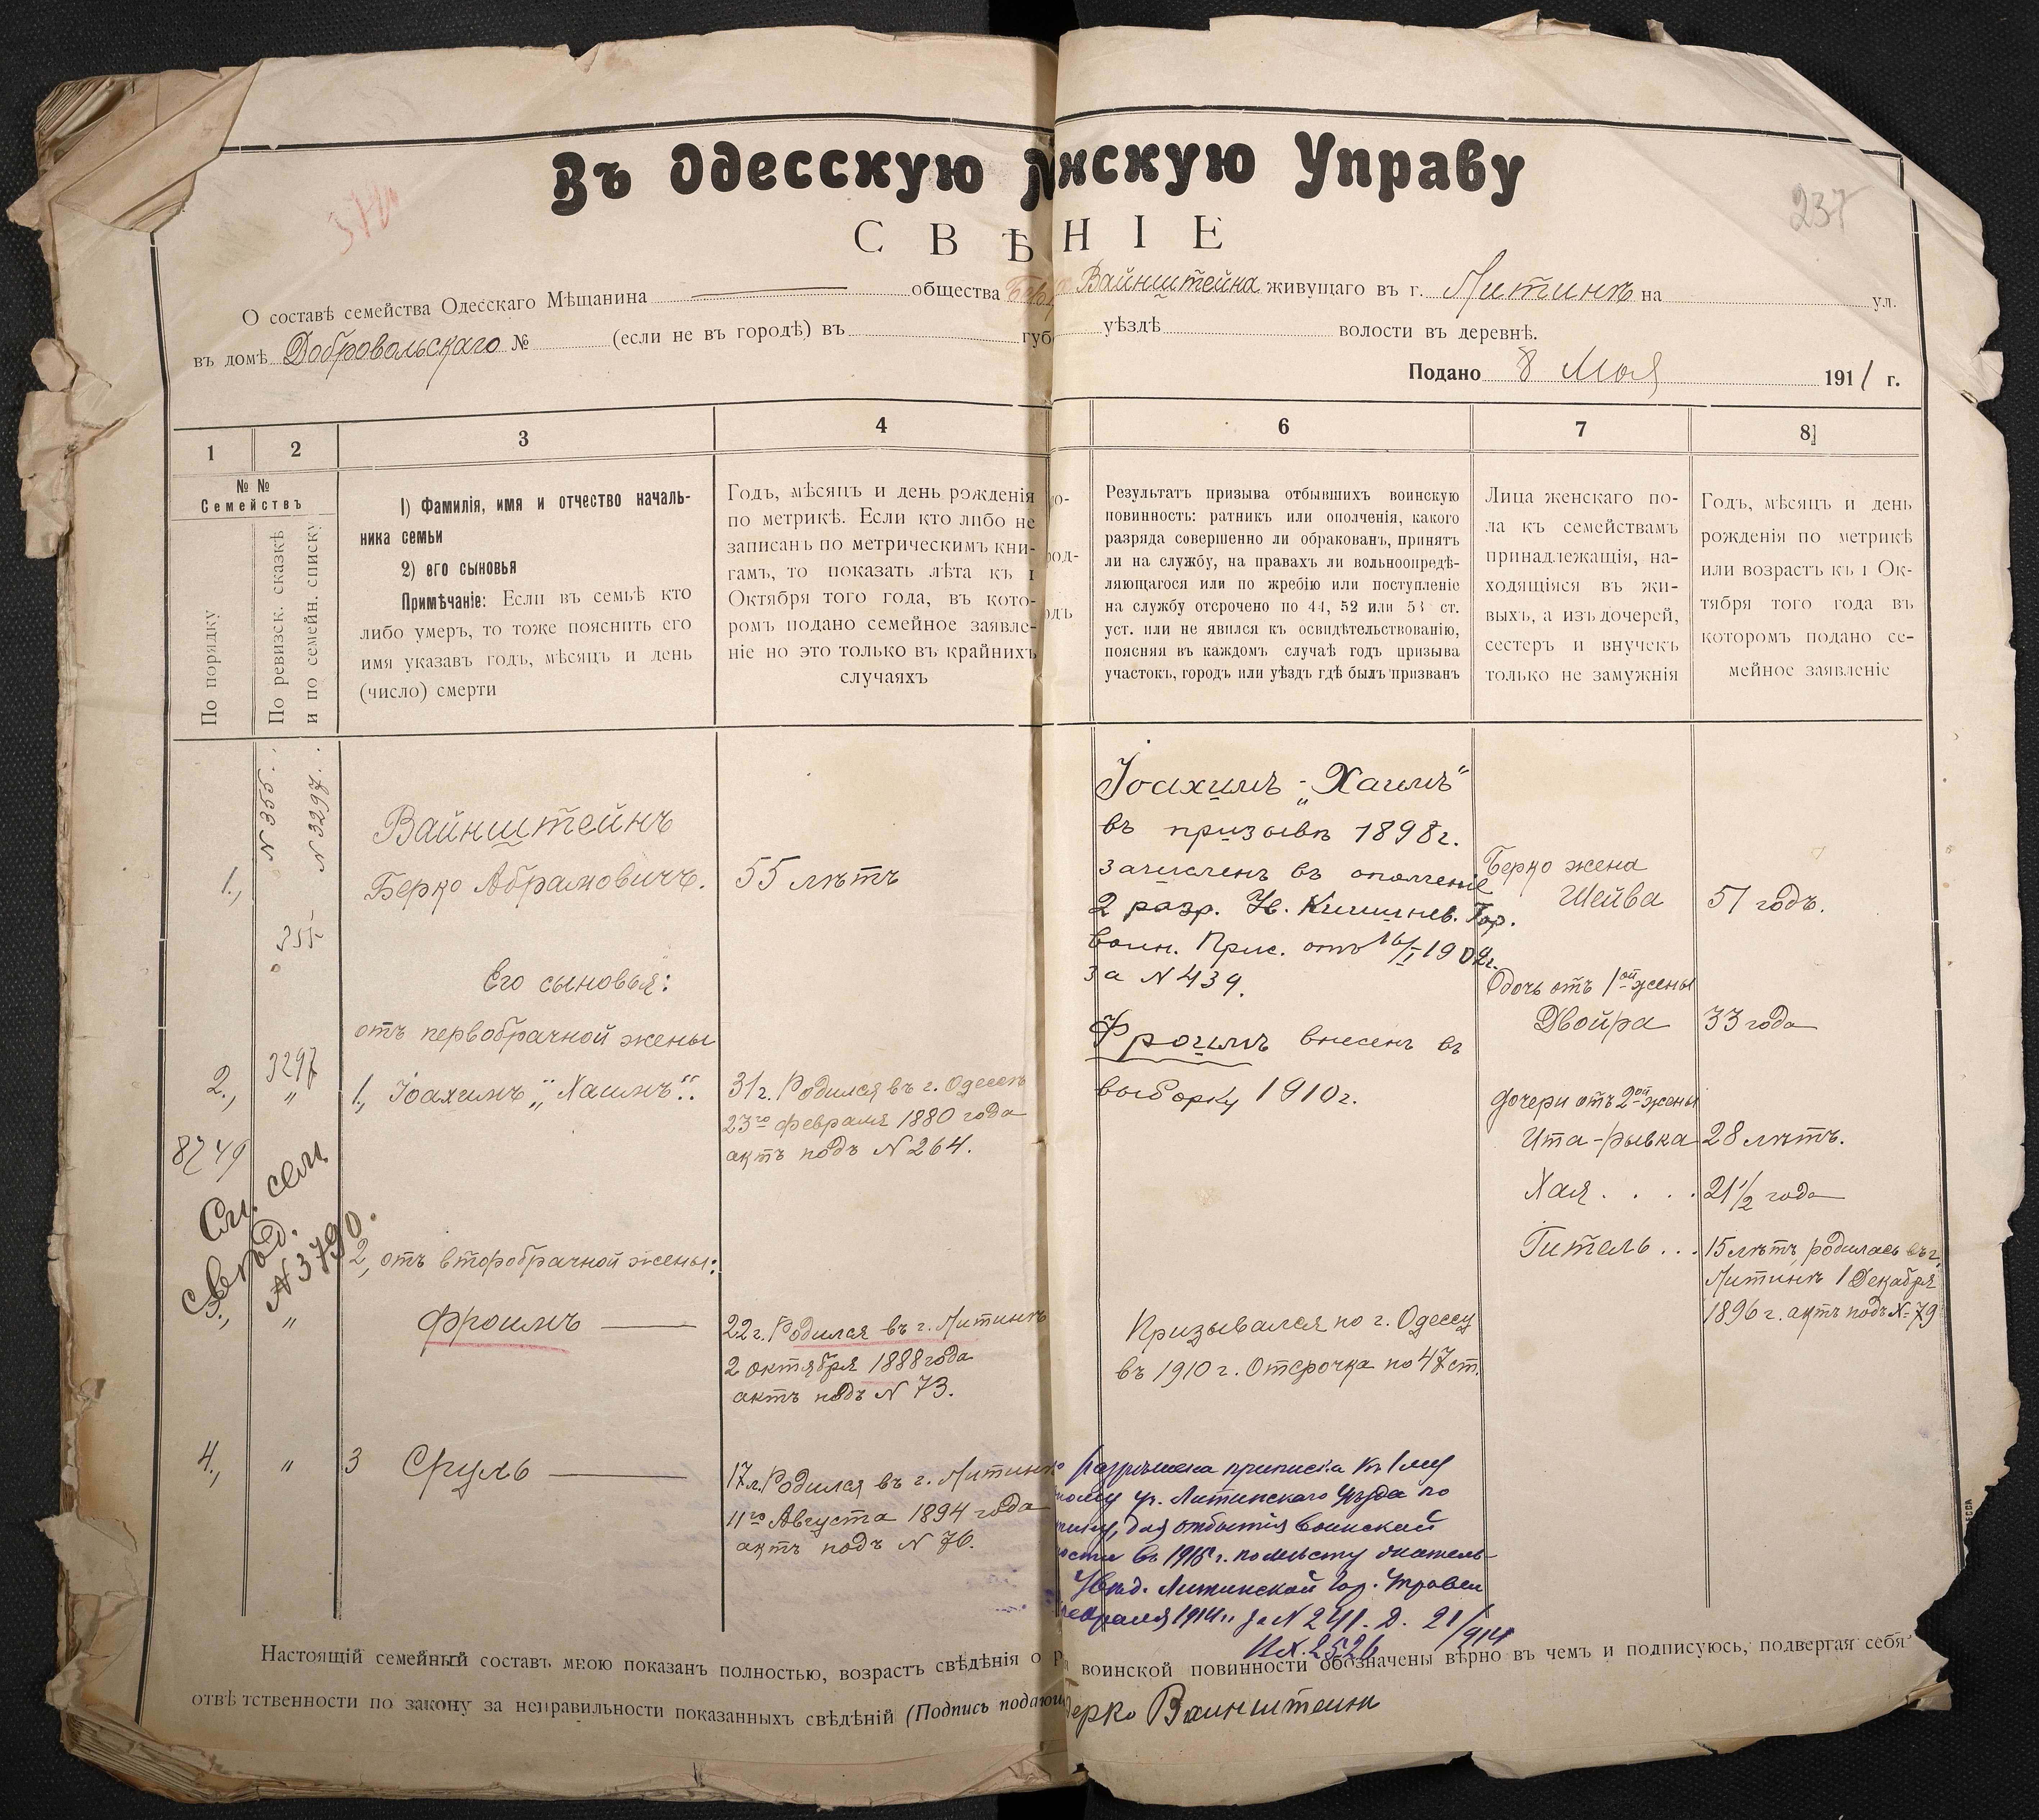 Въ Одесскую М нскую Управу
237
С В Ѣ Н І Е
О составѣ семейства Одесскаго Мѣщанина общества Вайнштейна живущаго въ г. Литинѣ на ул.
въ домѣ Добровольскаго № (если не въ городѣ) въ губ уѣздѣ волости въ деревнѣ.
Подано 8 Мая 1911 г.
1
2
3
4
6
7
8
№ №
Семействъ
По порядку
По ревизск. сказкѣ
и по семейн. списку
1) Фамилія, имя и отчество началь-
ника семьи
2) его сыновья
Примѣчаніе: Если въ семьѣ кто
либо умеръ, то тоже пояснить его
имя указавъ годъ, мѣсяцъ и день
(число) смерти
Годъ, мѣсяцъ и день рожденія
по метрикѣ. Если кто либо не
записанъ по метрическимъ кни-
гамъ, то показать лѣта къ 1
Октября того года, въ кото-
ромъ подано семейное заявле-
ніе но это только въ крайнихъ
случаяхъ
Результатъ призыва отбывшихъ воинскую
повинность: ратникъ или ополченія, какого
разряда совершенно ли обракованъ, принятъ
ли на службу, на правахъ ли вольноопредѣ-
ляющагося или по жребію или поступленіе
на службу отсрочено по 44, 52 или 53 ст.
уст. или не явился къ освидѣтельствованію,
поясняя въ каждомъ случаѣ годъ призыва
участокъ, городъ или уѣздъ гдѣ былъ призванъ
Лица женскаго по-
ла къ семействамъ
принадлежащія, на-
ходящіяся въ жи-
выхъ, а изъ дочерей,
сестеръ и внучекъ
только не замужнія
Годъ, мѣсяцъ и день
рожденія по метрикѣ
или возрастъ къ 1 Ок-
тября того года въ
которомъ подано се-
мейное заявленіе
N 3297.
1.,
Вайнштейнъ
Берко Абрамовичъ.
55 лѣтъ
Его сыновья:
отъ первобрачной жены
2., 3297 "
1., Іоахимъ „Хаимъ“.
31 г. Родился въ г. Одессѣ
23го февраля 1880 года
актъ подъ N 264.
8749
См. сем
N 3790.
2, отъ второбрачной жены:
3., "
Фроимъ
22 г. Родился въ г. Литинѣ
2 октября 1888 года
актъ подъ N 73.
4., " 3 Сруль
17 л. Родился въ г. Литинѣ
11го Августа 1894 года
актъ подъ N 76.
Іоахимъ - „Хаимъ“
въ призывѣ 1898 г.
зачисленъ въ ополченіе
2 разр. Кишинев. Гор.
воин. Прис. отъ 16/I 1902 г.
за N 439.
Фроимъ внесенъ въ
выборку 1910 г.
Призывался по г. Одессѣ
въ 1910 г. Отсрочка по 47 ст.
Разрѣшена приписка къ 1 му
Литинскаго Уѣзда по
для отбытія воинской
въ 1915 г. по мѣсту жатель-
Литинской Гор. Управы
за N 241. 21/914
Вх. 2526
Берко жена
Шейва
51 годъ.
дочь отъ 1ой жены
Двойра
33 года
дочери отъ 2ой жены
Ита-рывка
28 лѣтъ.
Хая . . . .
21 1/2 года
Гитель . . .
15 лѣтъ родилась въ г.
Литинѣ 1 Декабря
1896 г. актъ подъ N 79
Настоящій семейный составъ мною показанъ полностью, возрастъ свѣдѣнія о воинской повинности обозначены вѣрно въ чемъ и подписуюсь, подвергая себя
отвѣтственности по закону за неправильности показанныхъ свѣдѣній (Подпись подающ Берко Ваинштеин